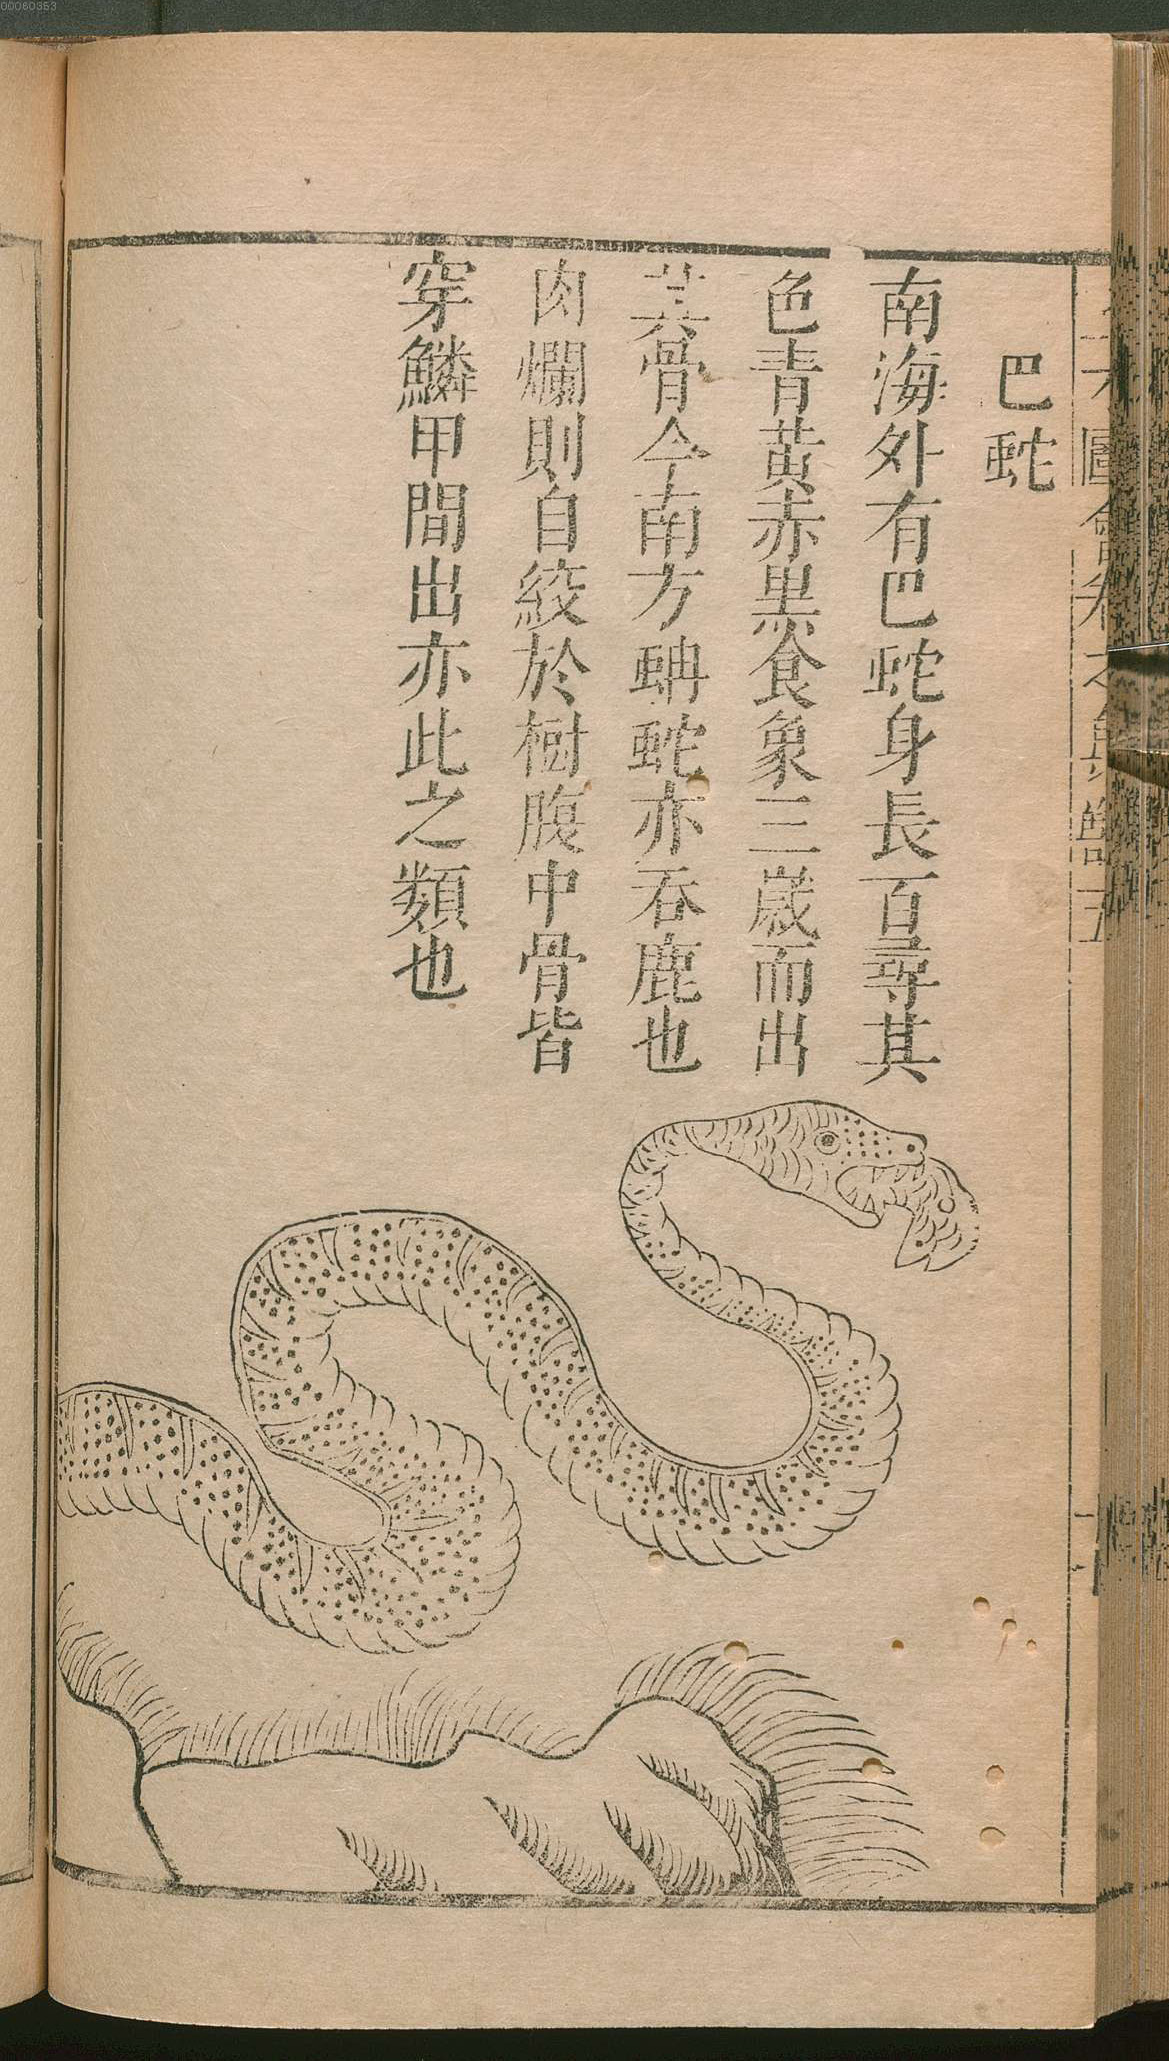 巴蛇
南海外有巴蛇身長百尋其
色青黃赤黒食象三歲而出
其骨今南方蚺蛇亦吞鹿也
肉爛則自絞於樹腹中骨皆
穿鱗甲間出亦此之類也
00060353